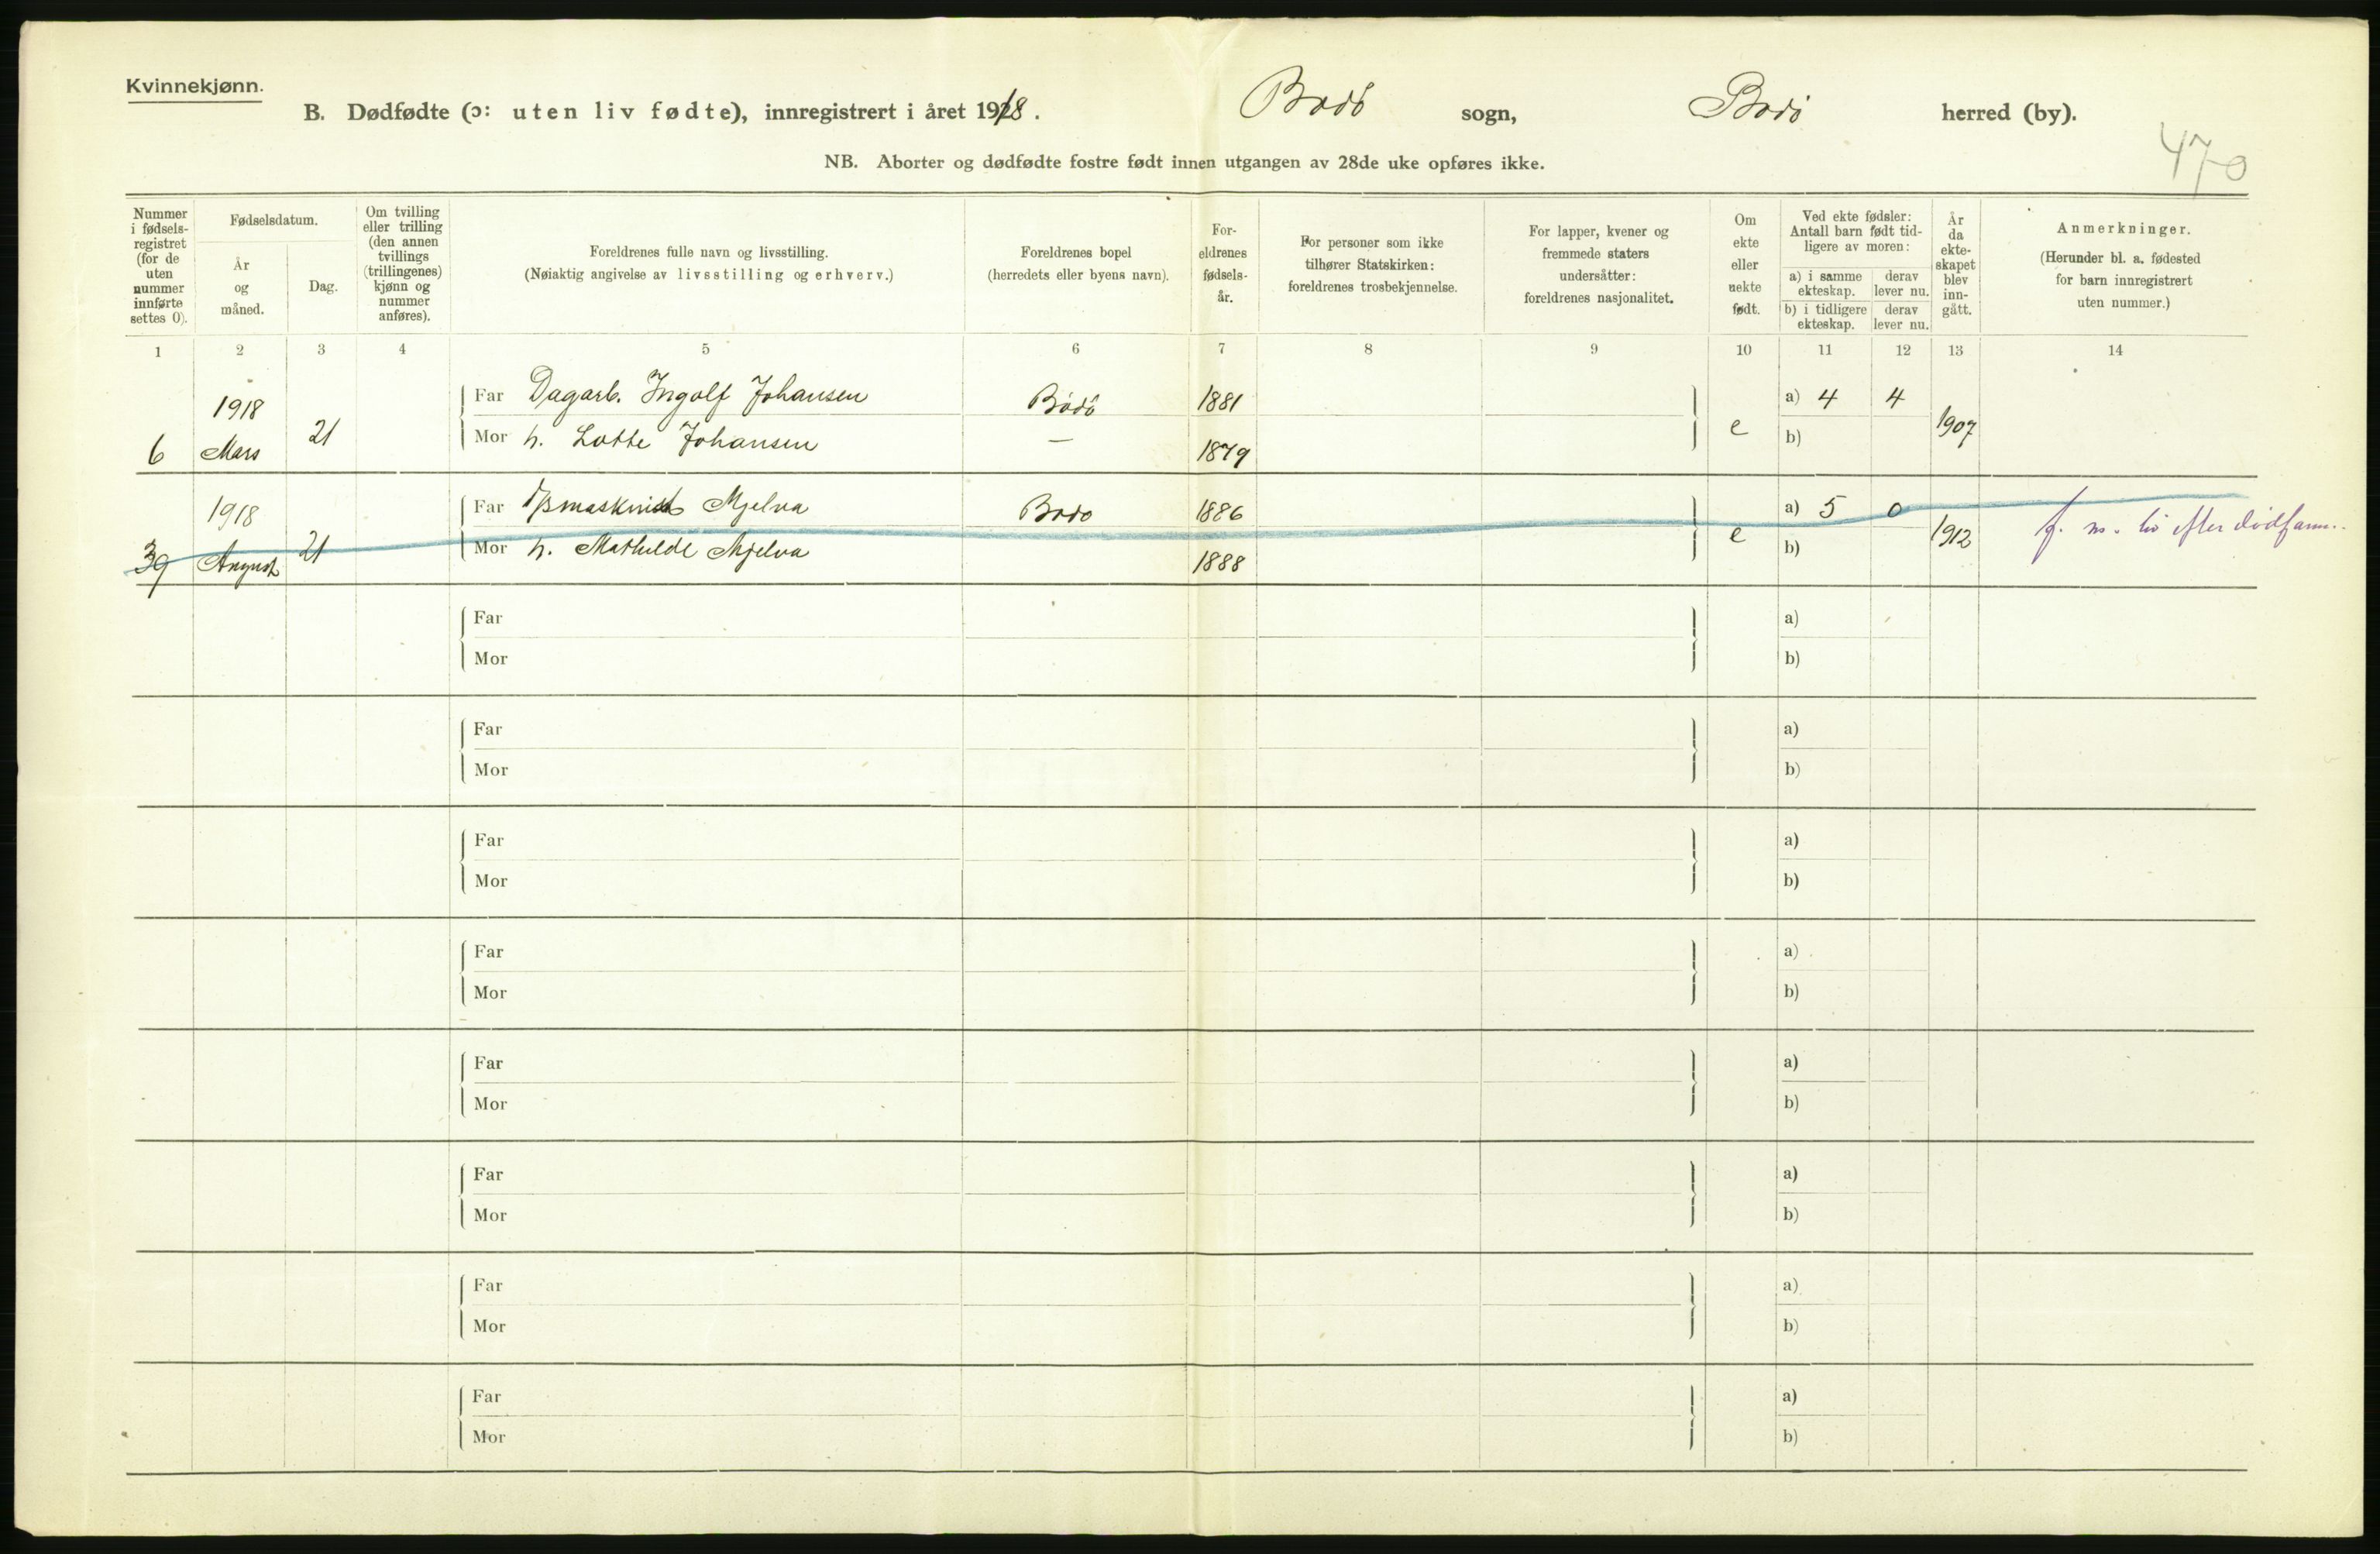 Kvinnekjønn.
B. Dødfødte (ɔ: uten liv fødte), innregistrert i året 1918. Bodö sogn, Bodö herred (by).
470
NB. Aborter og dødfødte fostre født innen utgangen av 28de uke opføres ikke.
Nummer i fødsels-registret (for de uten nummer innførte settes 0).
Fødselsdatum.
År og måned.
Dag.
Om tvilling eller trilling (den annen tvillings (trillingenes) kjønn og nummer anføres).
Foreldrenes fulle navn og livsstilling.
(Nøiaktig angivelse av livsstilling og erhverv.)
Foreldrenes bopel
(herredets eller byens navn).
For-eldrenes fødsels-år.
For personer som ikke tilhører Statskirken: foreldrenes trosbekjennelse.
For lapper, kvener og fremmede staters undersåtter: foreldrenes nasjonalitet.
Om ekte eller uekte født.
Ved ekte fødsler: Antall barn født tid-ligere av moren:
a) i samme ekteskap.
derav lever nu.
b) i tidligere ekteskap.
derav lever nu.
År da ekte-skapet blev inn-gått.
Anmerkninger.
(Herunder bl. a. fødested for barn innregistrert uten nummer.)
1 2 3 4 5 6 7 8 9 10 11 12 13 14
1918 Far Dagarb. Ingolf Johansen Bodö 1881 a) 4 4
6 Mars 21 Mor h. Lotte Johansen — 1879 e b) 1907
1918 Far Mjelva Bodo 1886 a) 5 0
39 August 21 Mor h. Mathilde Mjelva 1888 e b) 1912
liv efter
Far a)
Mor b)
Far a)
Mor b)
Far a)
Mor b)
Far a)
Mor b)
Far a)
Mor b)
Far a)
Mor b)
Far a)
Mor b)
Far a)
Mor b)